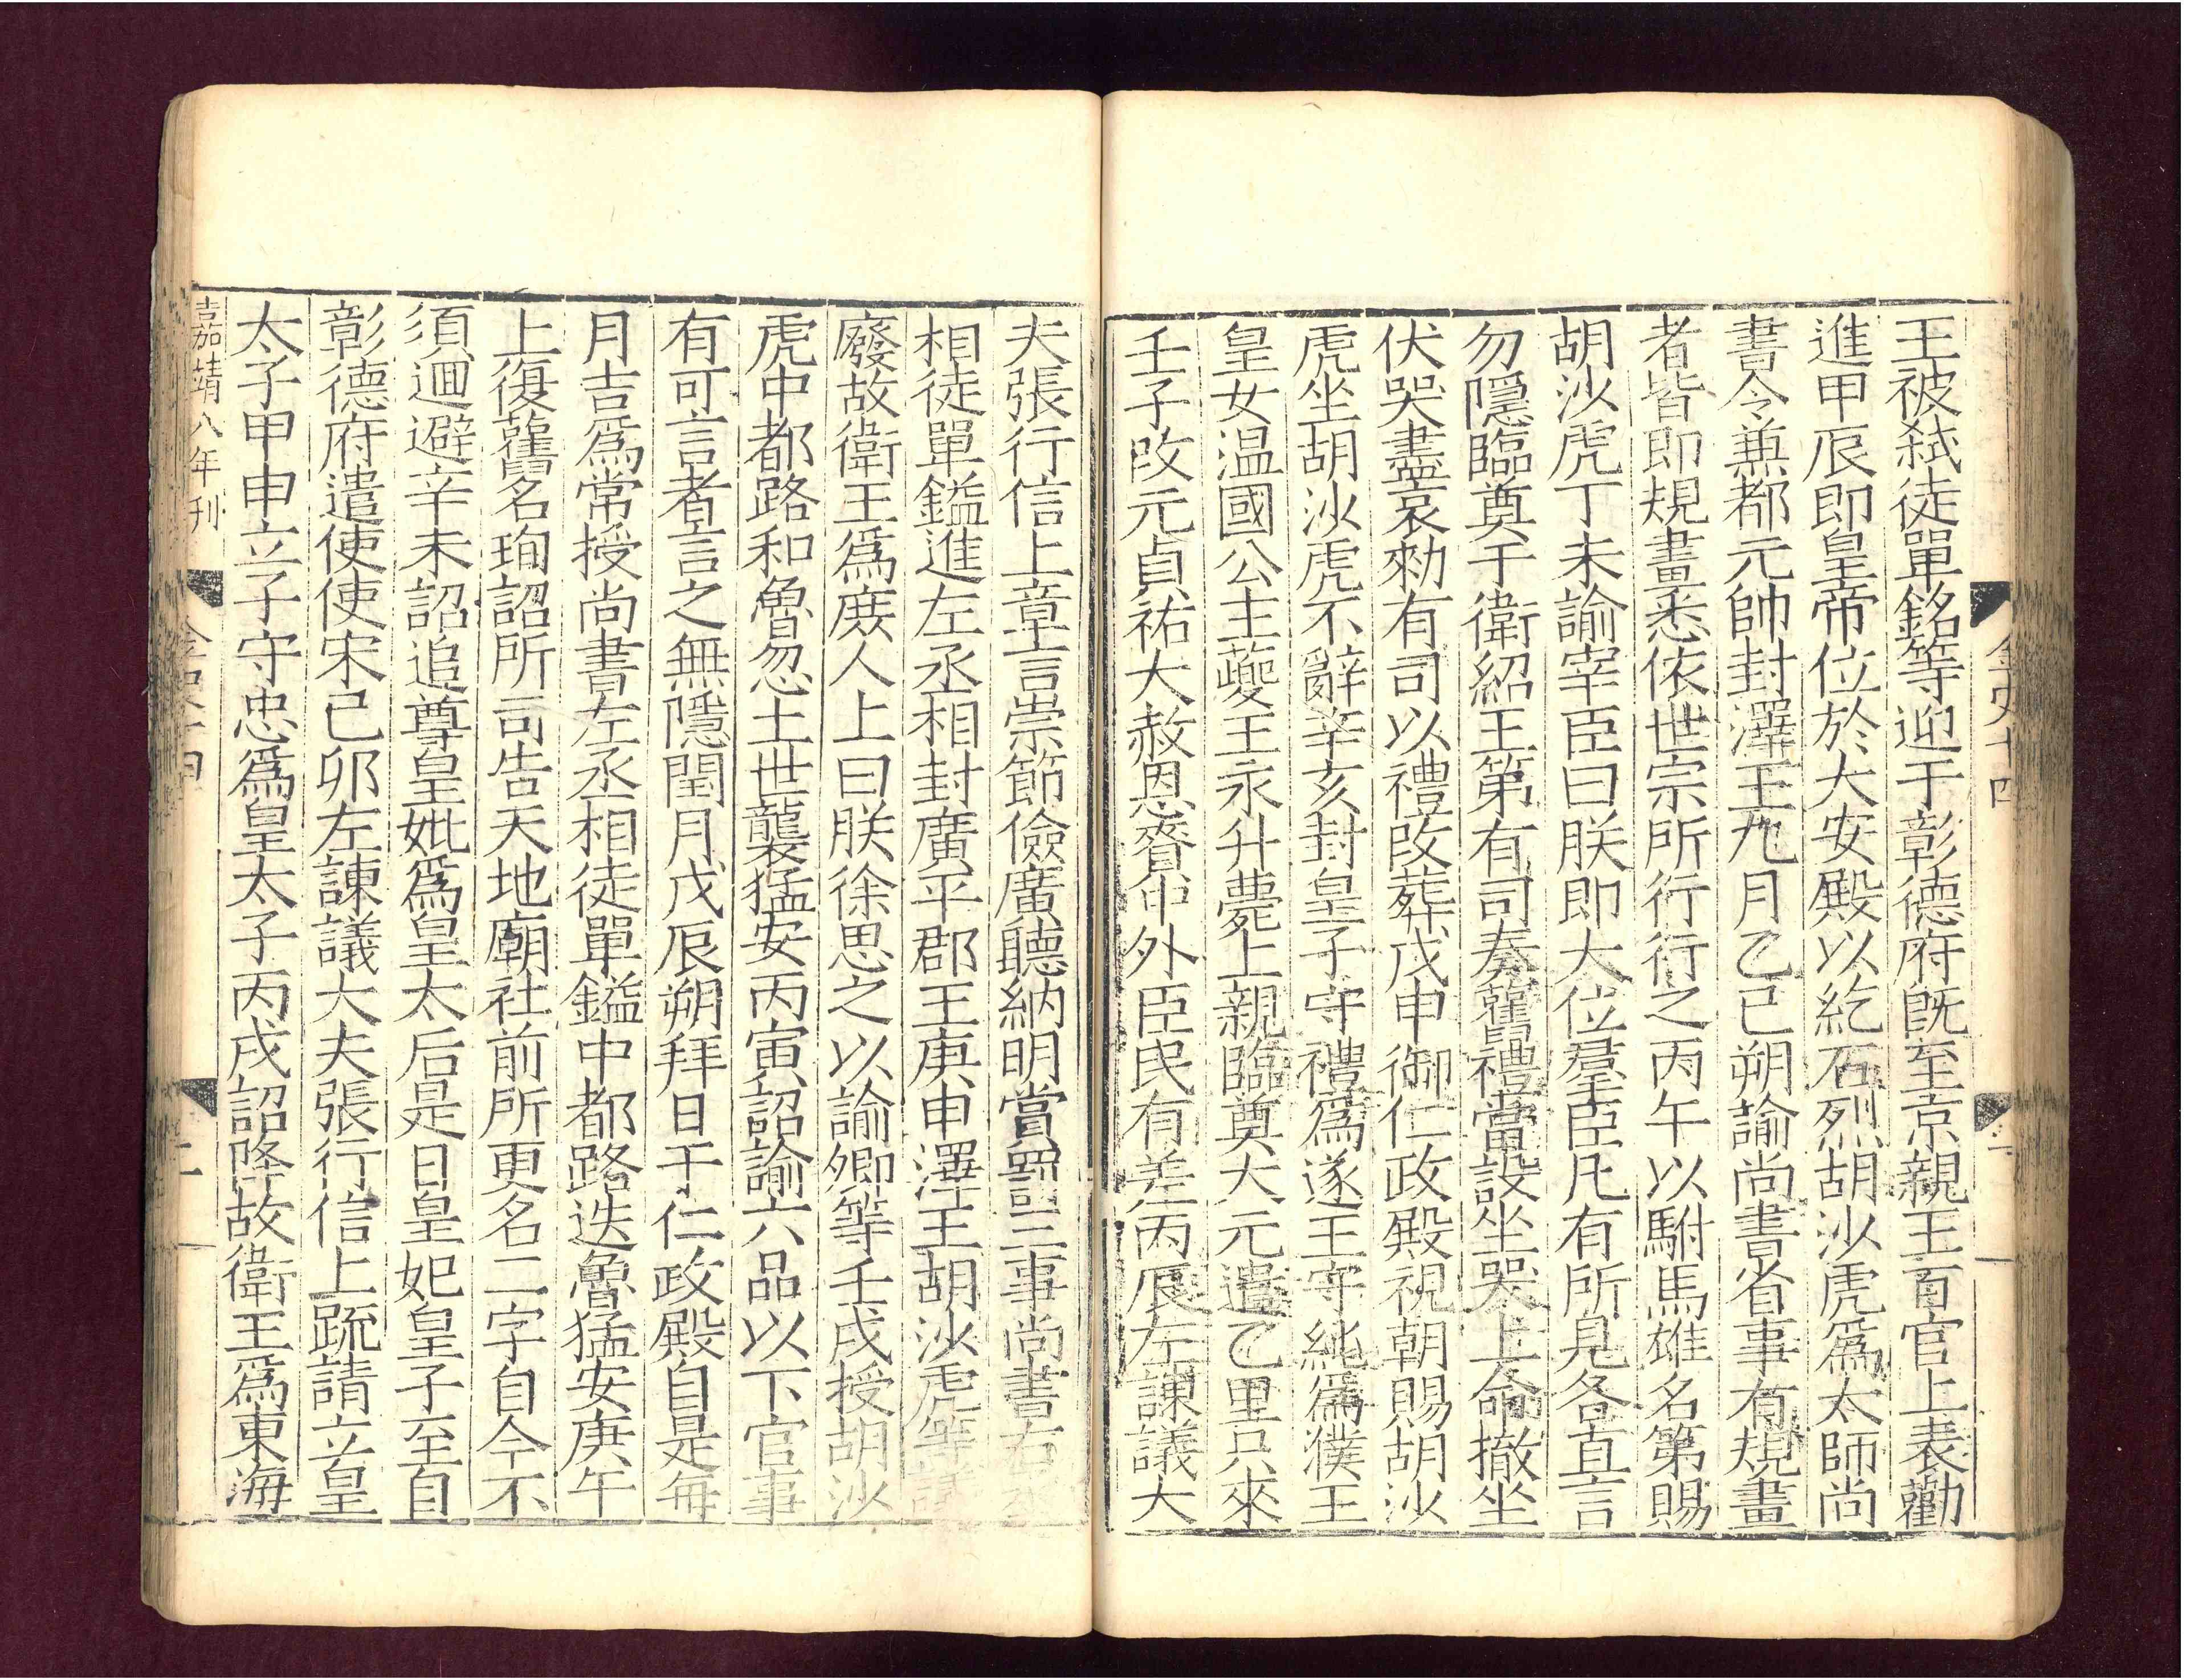 王被弑徒單銘等迎于彰德府既至京親王百官上表勸
進甲辰即皇帝位於大安殿以紇石烈胡沙虎爲太師尚
書令兼都元帥封澤王九月乙巳朔諭尚書省事有規畫
者皆即規畫悉依世宗所行行之丙午以駙馬雄名第賜
胡沙虎丁未諭宰臣曰朕即大位羣臣凡有所見各直言
勿隱臨奠于衛紹王第有司奏舊禮當設坐哭上命撤坐
伏哭盡哀勑有司以禮改葬戊申御仁政殿視朝賜胡沙
虎坐胡沙虎不辭辛亥封皇子守禮爲遂王守純爲濮王
皇女温國公主薨王永升薨上親臨奠大元遣乙里只來
壬子改元貞祐大赦恩賚中外臣民有差丙辰左諫議大
夫張行信上章言崇節儉廣聽納明賞罰三事尚書右丞
相徒單鎰進左丞相封廣平郡王庚申澤王胡沙虎等議
廢故衛王爲庶人上曰朕徐思之以諭卿等壬戌授胡沙
虎中都路和魯忽土世襲猛安丙寅詔諭六品以下官事
有可言者言之無隱閏月戊辰朔拜日于仁政殿自是每
月吉爲常授尚書左丞相徒單鎰中都路迭魯猛安庚午
上復舊名珣詔所司告天地廟社前所更名二字自今不
須迴避辛未詔追尊皇妣爲皇太后是日皇妃皇子至自
彰德府遣使使宋己卯左諫議大夫張行信上疏請立皇
太子甲申立子守忠爲皇太子丙戌詔降故衛王爲東海
嘉靖八年刊
金史十四
二